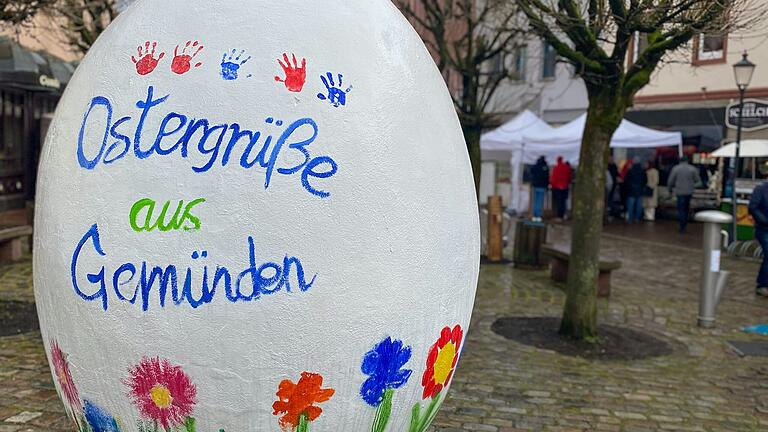 Ostergrüße
aus
Gemünden